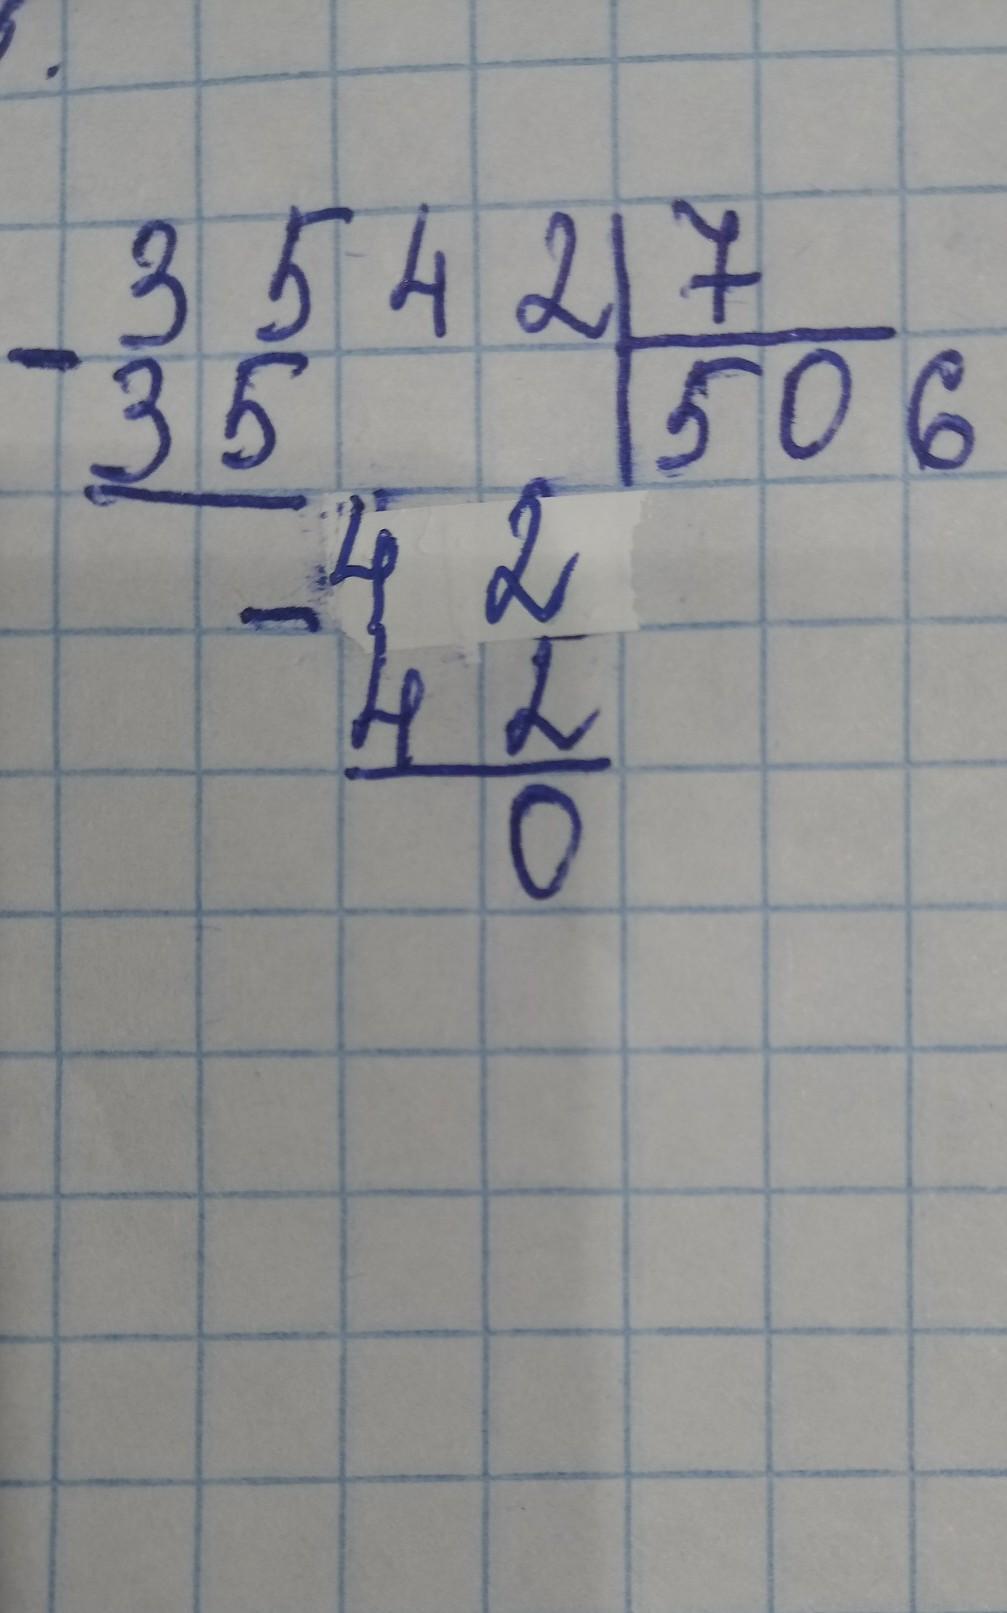 3542|7
-35|506
-42
42
0